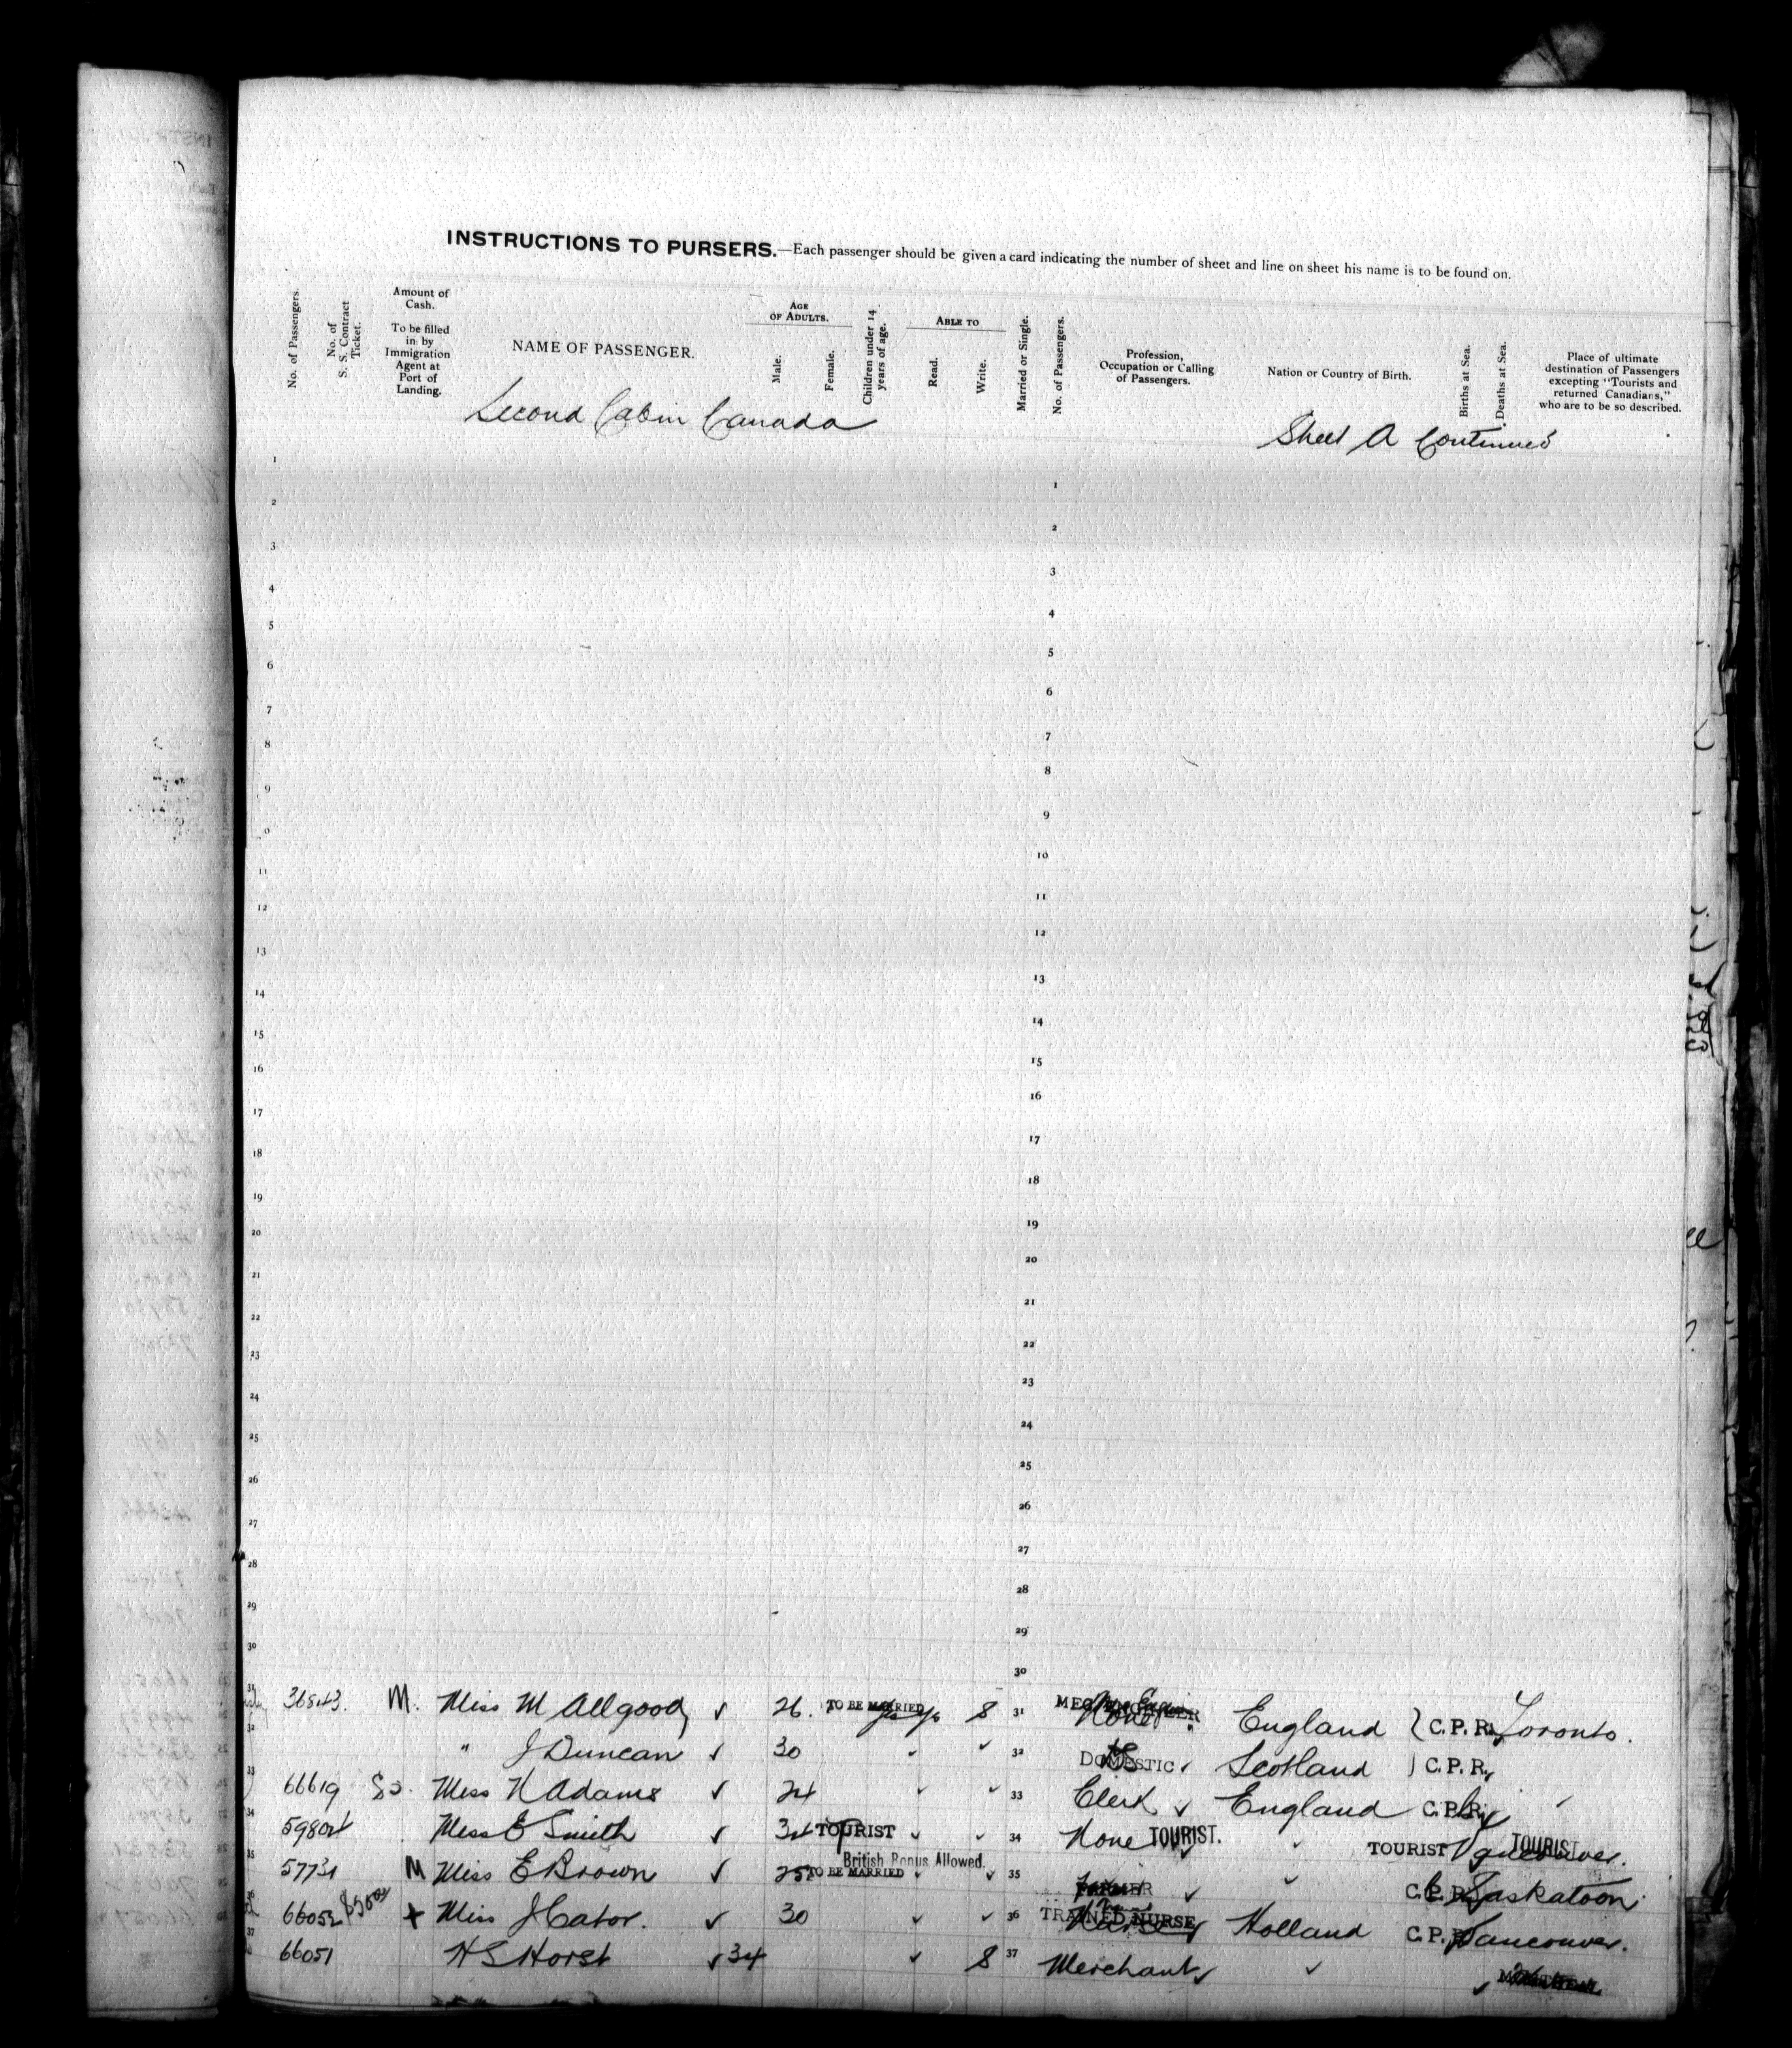 INSTRUCTIONS TO PURSERS.—Each passenger should be given a card indicating the number of sheet and line on sheet his name is to be found on.
No. of Passengers. No. of S. S. Contract Ticket. Amount of Cash. To be filled in by Immigration Agent at Port of Landing. NAME OF PASSENGER. AGE OF ADULTS. Male. Female. Children under 14 years of age. ABLE TO Read. Write. Married or Single. No. of Passengers. Profession, Occupation or Calling of Passengers. Nation or Country of Birth. Births at Sea. Deaths at Sea. Place of ultimate destination of Passengers excepting "Tourists and returned Canadians," who are to be so described.
Second Cabin Canada Sheet A Continued
1 1
2 2
3 3
4 4
5 5
6 6
7 7
8 8
9 9
0 10
11 11
12 12
13 13
14 14
15 15
16 16
17 17
18 18
19 19
20 20
21 21
22 22
23 23
24 24
25 25
26 26
27 27
28 28
29 29
30 30
31 36843. M. Miss M Allgood ✓ 26. TO BE MARRIED S 31 None England C. P. R. Toronto.
32 " J Duncan ✓ 30 ✓ ✓ 32 DOMESTIC ✓ Scotland C. P. R.
33 66619 Miss N Adams ✓ 24 ✓ ✓ 33 Clerk ✓ England C. P. R.
34 59804 Miss E Smith ✓ 34 TOURIST ✓ ✓ 34 None TOURIST. ✓ TOURIST Vancouver. TOURIST
British Bonus Allowed.
35 57731 M Miss E Brown ✓ 25 TO BE MARRIED ✓ ✓ 35 FARMER ✓ ✓ C. P. R. Saskatoon.
36 66052 $50 + Miss J Cator. ✓ 30 ✓ ✓ 36 TRAINED NURSE Nurse Holland C. P. R. Vancouver.
37 66051 H S Horst ✓ 34 ✓ S 37 Merchant ✓ ✓ ✓